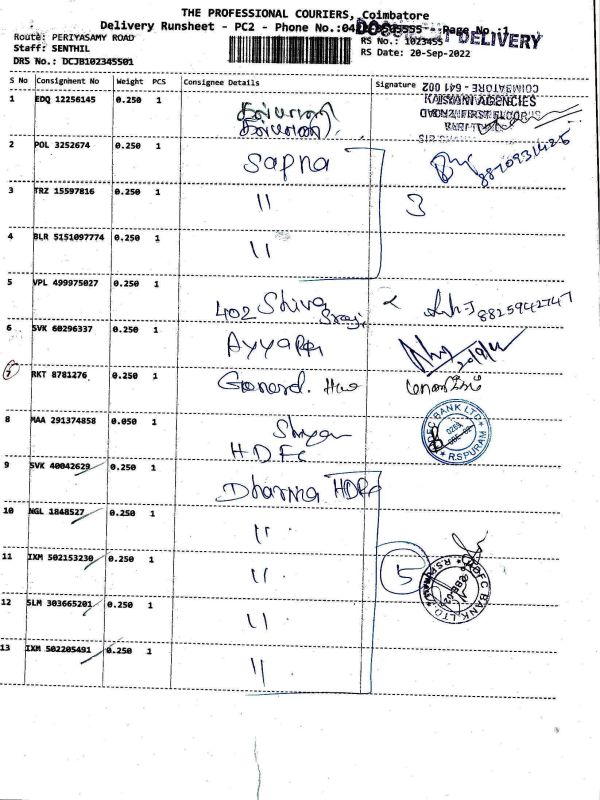 THE PROFESSIONAL COURIERS, Coimbatore
Delivery Runsheet - PC2 - Phone No.:04 Page No.:1
DELIVERY
Route: PERIYASAMY ROAD
Staff: SENTHIL
DRS No.: DCJB102345501
RS No.: 1023455
RS Date: 20-Sep-2022
S No Consignment No Weight PCS Consignee Details Signature
COIMBATORE - 641 002
KALYANI AGENCIES
1 EDQ 12256145 0.250 1
2 POL 3252674 0.250 1 Sapna 8870931425
3 TRZ 15597816 0.250 1 " 3
4 BLR 5151097774 0.250 1 "
5 VPL 499975027 0.250 1 402 Shiva 8825942747
6 SVK 60296337 0.250 1 20/9/22
RKT 8781276 0.250 1
8 MAA 291374858 0.050 1 HDFC
HDFC BANK LTD
R.S.PURAM
9 SVK 40042629 0.250 1 Dharma HDFC
10 NGL 1848527 0.250 1 "
11 IXM 502153230 0.250 1 " 5
HDFC BANK LTD
R.S.PURAM
12 SLM 303665201 0.250 1 "
13 IXM 502205491 0.250 1 "